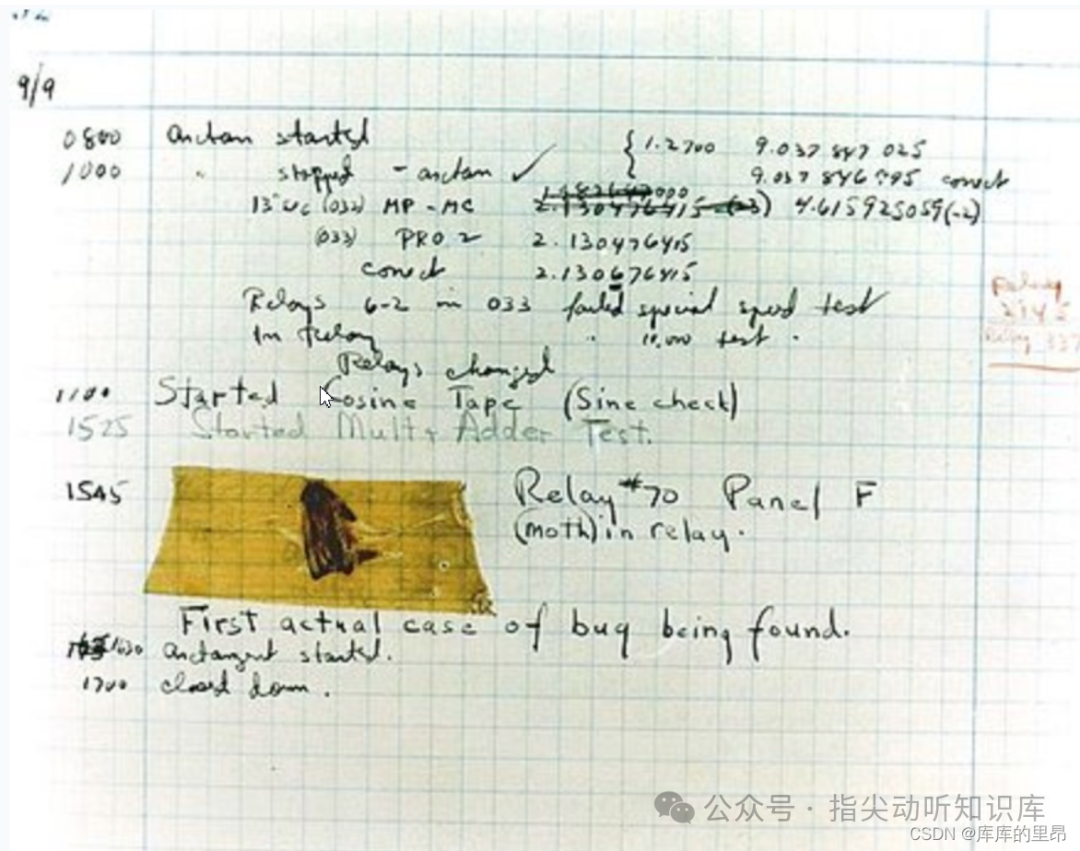 9/9
0800 arctan started { 1.2700 9.037 847 025
1000 " stopped - arctan ✓ 9.037 846 995 correct
13" UC (032) MP - MC 2.130476415 (-3) 4.615925059(-2)
(033) PRO 2 2.130476415
correct 2.130676415
Relays 6-2 in 033 failed special speed test
in Relay " 10,000 test .
Relays changed
Relay
2145
Relay 337
1100 Started Cosine Tape (Sine check)
1525 Started Mult + Adder Test.
1545 Relay #70 Panel F
(moth) in relay.
First actual case of bug being found.
1630 arctangent started.
1700 closed down.
公众号 · 指尖动听知识库
CSDN @库库的里昂